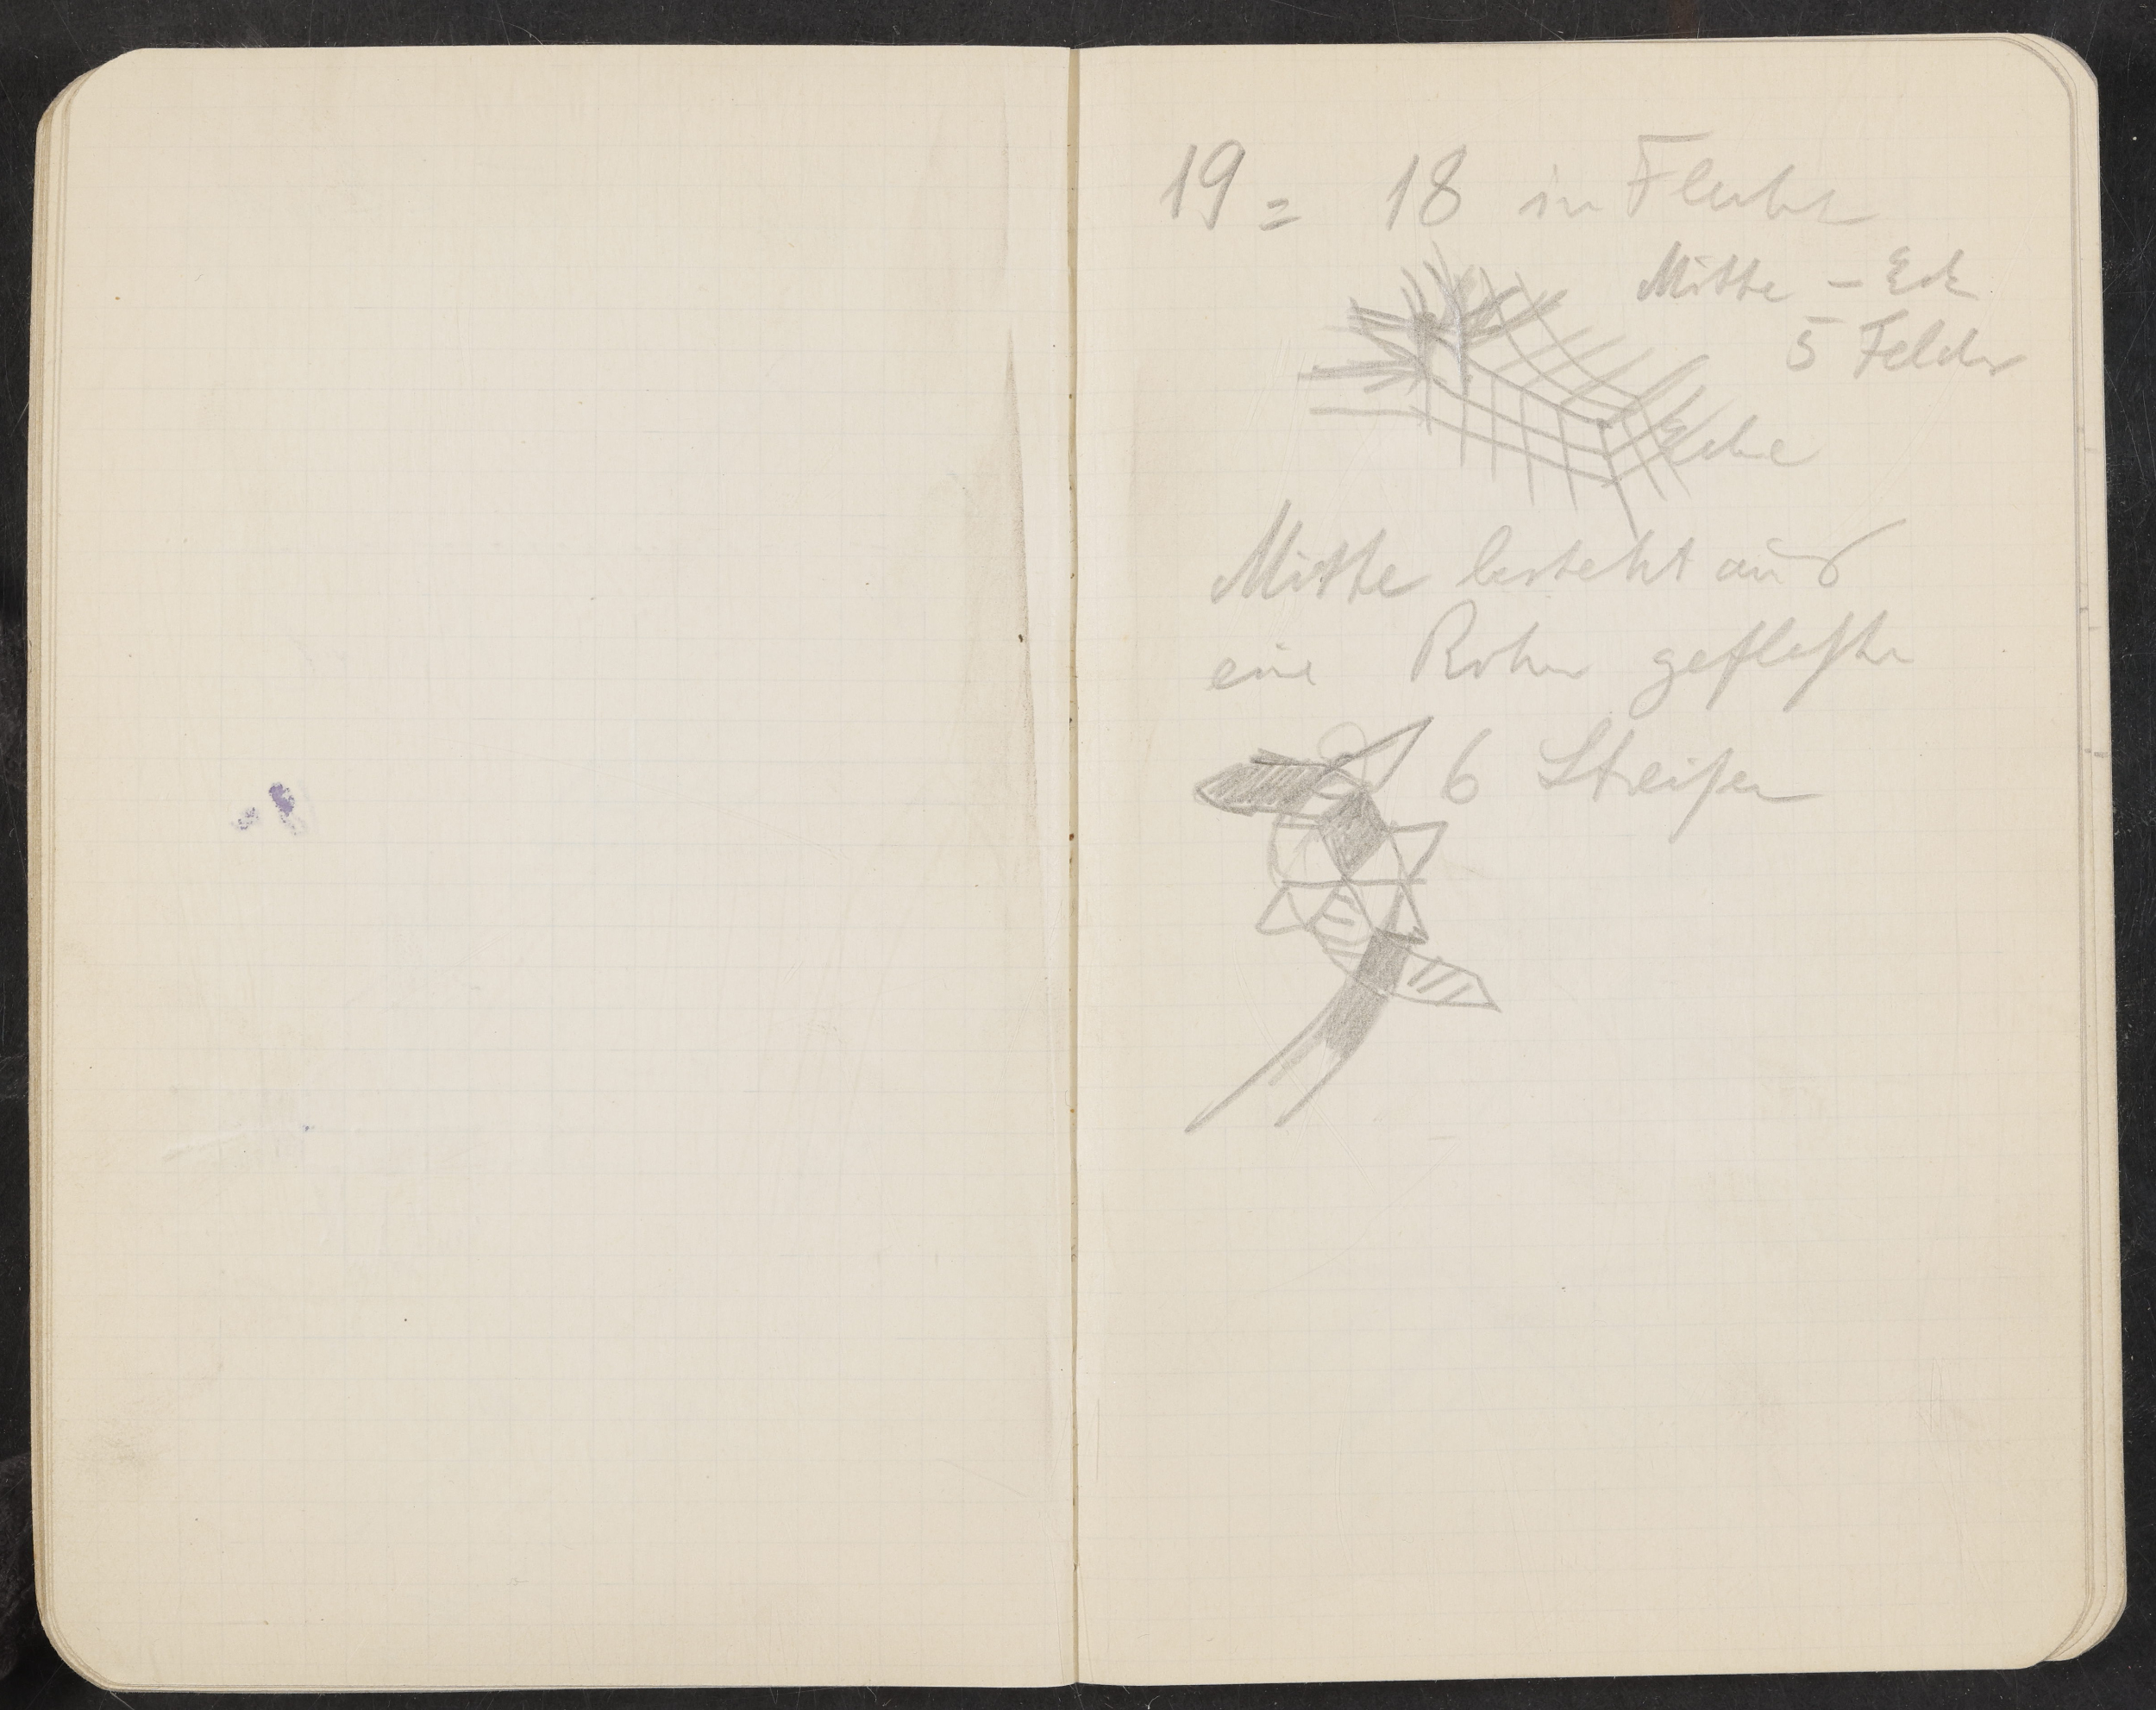 19 = 18 in Flecht
Mitte – Eck
5 Felder
Ecke
Mitte besteht aus
eine Rohr
6 Streifen